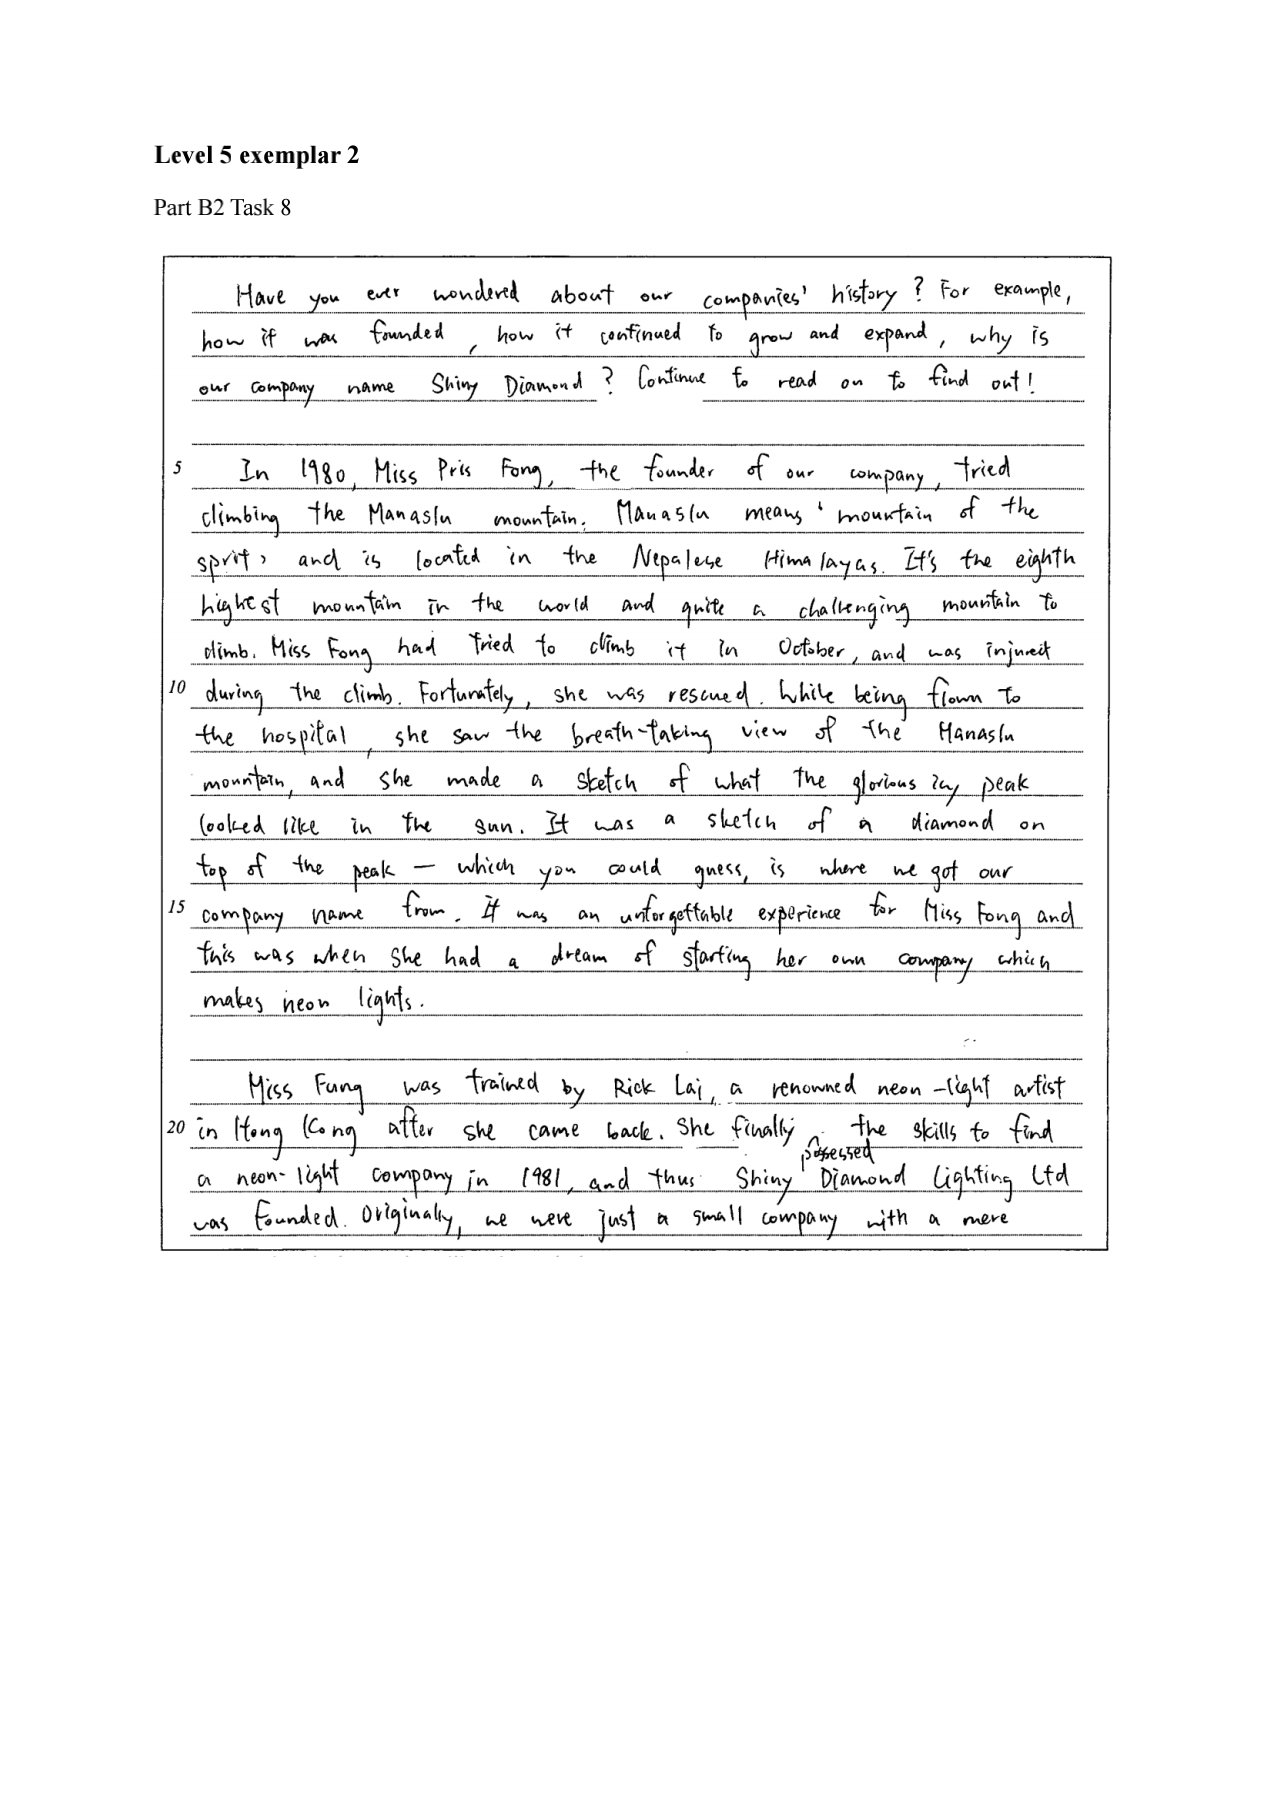 Level 5 exemplar 2
Part B2 Task 8
Have you ever wondered about our companies' history? For example,
how it was founded, how it continued to grow and expand, why is
our company name Shiny Diamond? Continue to read on to find out!
5 In 1980, Miss Pris Fong, the founder of our company, tried
climbing the Manaslu mountain. Manaslu means 'mountain of the
sprit' and is located in the Nepalese Himalayas. It's the eighth
highest mountain in the world and quite a challenging mountain to
climb. Miss Fong had tried to climb it in October, and was injured
10 during the climb. Fortunately, she was rescued. While being flown to
the hospital, she saw the breath-taking view of the Manaslu
mountain, and she made a sketch of what the glorious icy peak
looked like in the sun. It was a sketch of a diamond on
top of the peak — which you could guess, is where we got our
15 company name from. It was an unforgettable experience for Miss Fong and
this was when she had a dream of starting her own company which
makes neon lights.
Miss Fung was trained by Rick Lai, a renowned neon-light artist
20 in Hong Kong after she came back. She finally possessed the skills to find
a neon-light company in 1981, and thus Shiny Diamond Lighting Ltd
was founded. Originally, we were just a small company with a mere